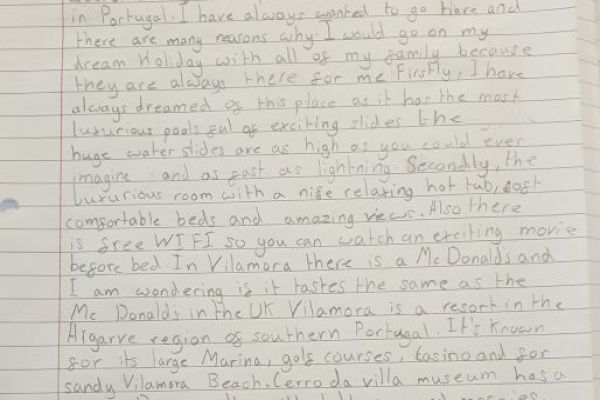 in Portugal. I have always wanted to go there and
there are many reasons why I would go on my
dream Holiday with all of my family because
they are always there for me Firstly, I have
always dreamed of this place as it has the most
luxurious pools ful of exciting slides the
huge water slides are as high as you could ever
imagine and as fast as lightning. Secondly, the
Luxurious room with a nice relaxing hot tub, soft
comfortable beds and amazing views. Also there
is free WIFI so you can watch an exciting movie
before bed In Vilamora there is a Mc Donalds and
I am wondering if it tastes the same as the
Mc Donalds in the UK Vilamora is a resort in the
Algarve region of southern Portugal. It's known
for its large Marina, golf courses, Casino and for
sandy Vilamora Beach. Cerro da villa museum has a